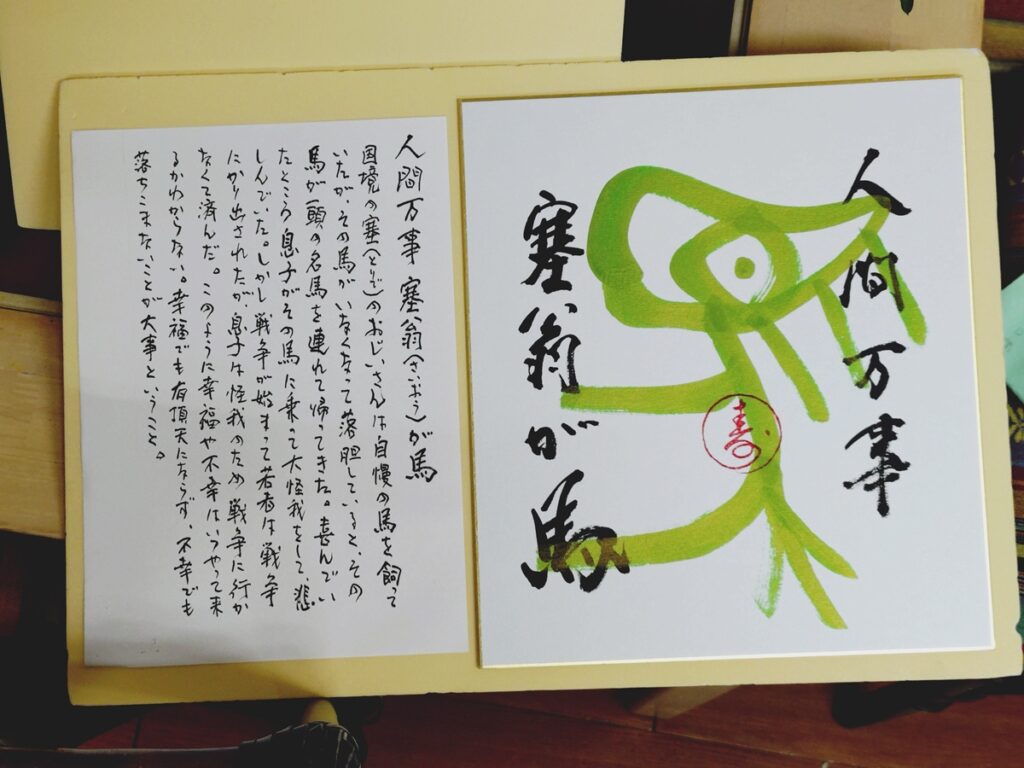 人間万事
塞翁が馬
寿
人間万事 塞翁(さいおう)が馬
国境の塞(とりで)のおじいさんは自慢の馬を飼って
いたが、その馬がいなくなって落胆していると、その
馬が一頭の名馬を連れて帰ってきた。喜んでい
たところ息子がその馬に乗って大怪我をして、悲
しんでいた。しかし戦争が始まって若者は戦争
にかり出されたが、息子は怪我のため戦争に行か
なくて済んだ。このように幸福や不幸はいつやって来
るかわからない。幸福でも有頂天にならず、不幸でも
落ちこまないことが大事ということ。